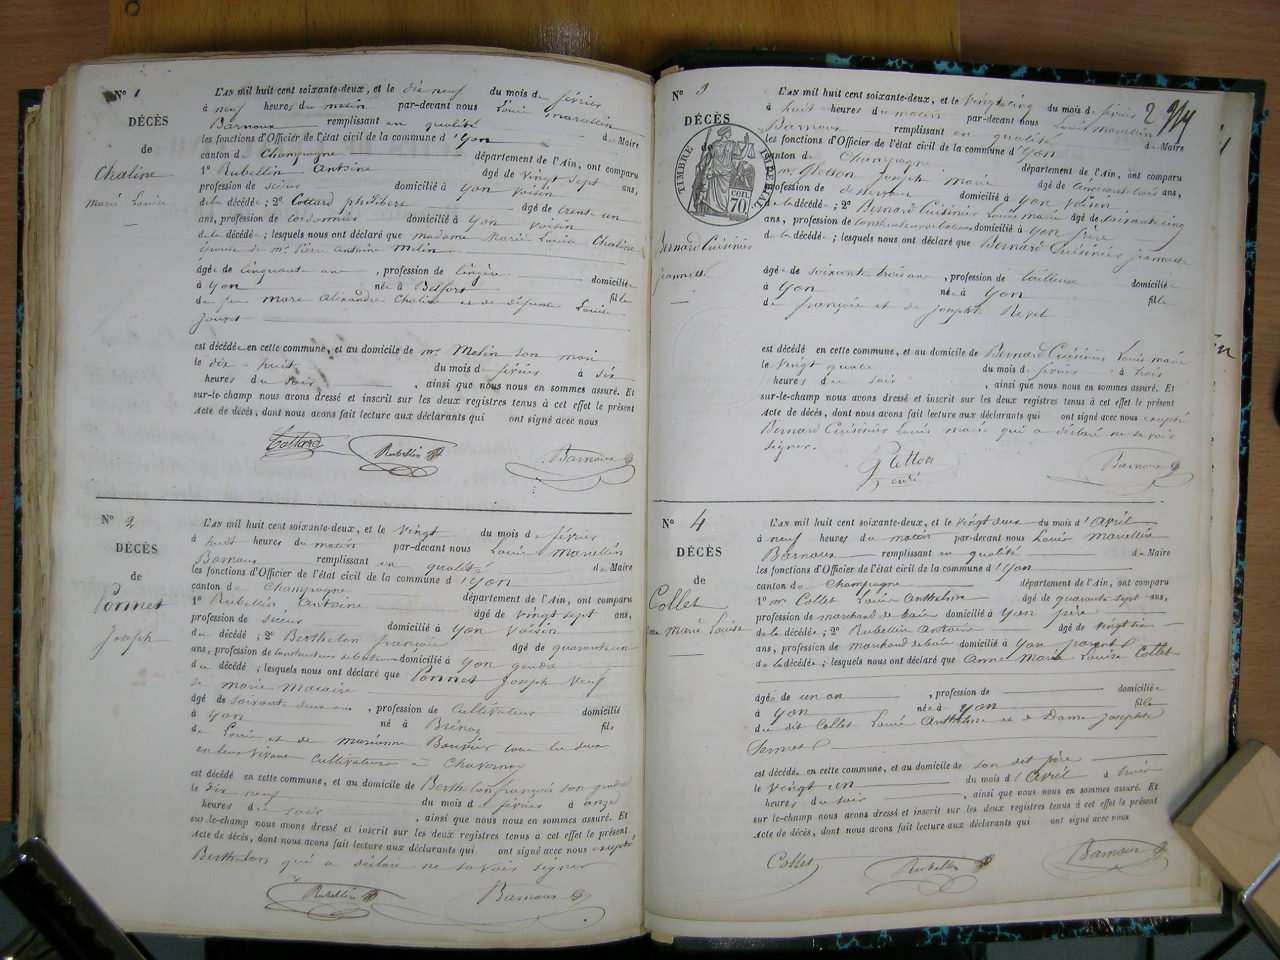 N° 1
DÉCÈS
de
Chaline
Marie Louise
L'AN mil huit cent soixante-deux, et le dix neuf du mois de février
à neuf heures du matin par-devant nous Louis Marcellin
Barnoux remplissant en qualité de Maire
les fonctions d'Officier de l'état civil de la commune d'Yon
canton de Champagne département de l'Ain, ont comparu
1° Rubellin Antoine âgé de vingt sept ans,
profession de domicilié à Yon voisin
de la décédée ; 2° Cottard Philibert âgé de trente un
ans, profession de cordonnier domicilié à Yon voisin
de la décédée ; lesquels nous ont déclaré que madame Marie Louise Chaline
épouse de Mr Antoine Melin
âgée de cinquante ans, profession de lingère domiciliée
à Yon née à Belfort fille
de feu Alexandre Chaline et de défunte Louise
est décédée en cette commune, et au domicile de Mr Melin son mari
le dix-huit du mois de février à six
heures du soir, ainsi que nous nous en sommes assuré. Et
sur-le-champ nous avons dressé et inscrit sur les deux registres tenus à cet effet le présent
Acte de décès, dont nous avons fait lecture aux déclarants qui ont signé avec nous
Cottard Rubellin Barnoux
N° 2
DÉCÈS
de
Ponnet
Joseph
L'AN mil huit cent soixante-deux, et le vingt du mois de février
à huit heures du matin par-devant nous Louis Marcellin
Barnoux remplissant en qualité de Maire
les fonctions d'Officier de l'état civil de la commune d'Yon
canton de Champagne département de l'Ain, ont comparu
1° Rubellin Antoine âgé de vingt sept ans,
profession de domicilié à Yon voisin
du décédé ; 2° Berthelon françois âgé de quarante un
ans, profession de domicilié à Yon gendre
du décédé ; lesquels nous ont déclaré que Ponnet Joseph veuf
de marie Macaire
âgé de soixante deux ans, profession de Cultivateur domicilié
à Yon né à Brénaz fils
de Louis et de marianne Bouvier tous les deux
en leur vivant cultivateurs à Chavornay
est décédé en cette commune, et au domicile de Berthelon françois son gendre
le dix neuf du mois de février à onze
heures du soir, ainsi que nous nous en sommes assuré. Et
sur-le-champ nous avons dressé et inscrit sur les deux registres tenus à cet effet le présent
Acte de décès, dont nous avons fait lecture aux déclarants qui ont signé avec nous excepté
Berthelon qui a déclaré ne savoir signer
Rubellin Barnoux
N° 3
DÉCÈS
de
TIMBRE IMPÉRIAL
70 cen.
Bernard Cuisinier
jeannette
2
L'AN mil huit cent soixante-deux, et le vingt cinq du mois de février
à huit heures du matin par-devant nous Louis Marcellin
Barnoux remplissant en qualité de Maire
les fonctions d'Officier de l'état civil de la commune d'Yon
canton de Champagne département de l'Ain, ont comparu
1° Mr Joseph Marie âgé de cinquante trois ans,
profession de desservant domicilié à Yon voisin
de la décédée ; 2° Bernard Cuisinier Louis marie âgé de soixante cinq
ans, profession de domicilié à Yon frère
de la décédée ; lesquels nous ont déclaré que Bernard Cuisinier jeannette
âgée de soixante trois ans, profession de tailleuse domiciliée
à Yon née à Yon fille
de françois et de Josephte
est décédée en cette commune, et au domicile de Bernard Cuisinier Louis marie
le vingt quatre du mois de février à trois
heures du soir, ainsi que nous nous en sommes assuré. Et
sur-le-champ nous avons dressé et inscrit sur les deux registres tenus à cet effet le présent
Acte de décès, dont nous avons fait lecture aux déclarants qui ont signé avec nous excepté
Bernard Cuisinier Louis marie qui a déclaré ne savoir
signer.
curé Barnoux
N° 4
DÉCÈS
de
Collet
Marie Louise
L'AN mil huit cent soixante-deux, et le vingt deux du mois d'Avril
à neuf heures du matin par-devant nous Louis Marcellin
Barnoux remplissant en qualité de Maire
les fonctions d'Officier de l'état civil de la commune d'Yon
canton de Champagne département de l'Ain, ont comparu
1° Mr Collet Louis Anthelme âgé de quarante sept ans,
profession de marchand de bois domicilié à Yon père
de la décédée ; 2° Rubellin Antoine âgé de vingt six
ans, profession de Marchand de bois domicilié à Yon parent
de la décédée ; lesquels nous ont déclaré que Anne Marie Louise Collet
âgée de un an, profession de domiciliée
à Yon née à Yon fille
du dit Collet Louis Anthelme et de Dame Josephte
est décédée en cette commune, et au domicile de son dit père
le vingt un du mois d'Avril à huit
heures du soir, ainsi que nous nous en sommes assuré. Et
sur-le-champ nous avons dressé et inscrit sur les deux registres tenus à cet effet le présent
Acte de décès, dont nous avons fait lecture aux déclarants qui ont signé avec nous
Collet Rubellin Barnoux